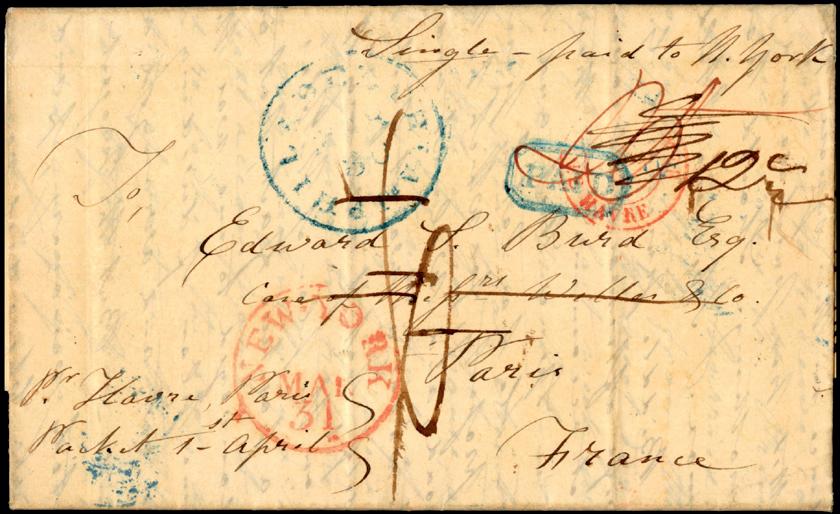 Single - paid to N. York
PHILADELPHIA
PAID
HAVRE
12 c
To,
Edward S. Burd Esq.
Care of Messrs Welles & Co.
NEW-YORK
MAR
31
Paris
Pr Havre, Paris
Packet 1st April
France